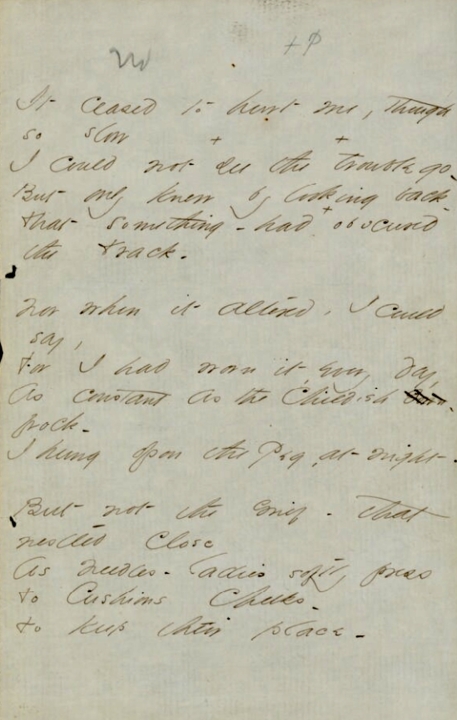 + P
It ceased to hurt me, though
so slow
+ +
I could not see the trouble go -
But only knew by looking back -
+
that something - had obscured
the track -
Nor when it altered, I could
say,
For I had worn it, every day,
As constant as the childish
frock -
I hung upon the Peg, at night -
But not the Grief - that
nestled close
As needles - ladies softly press
to Cushions Cheeks -
to keep their place -